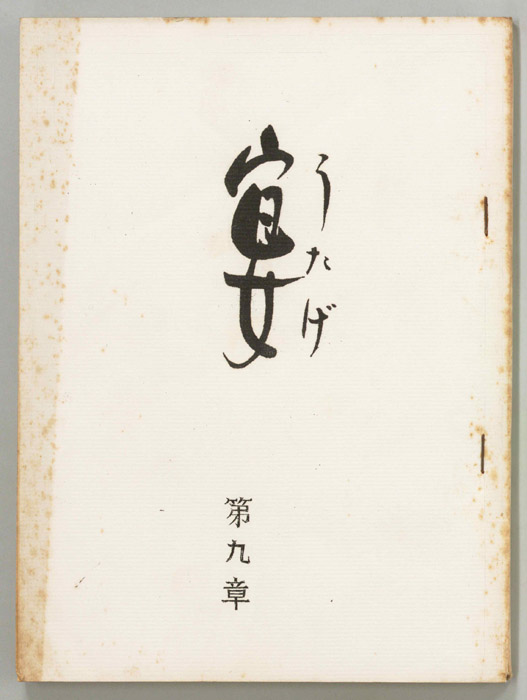 宴
うたげ
第九章